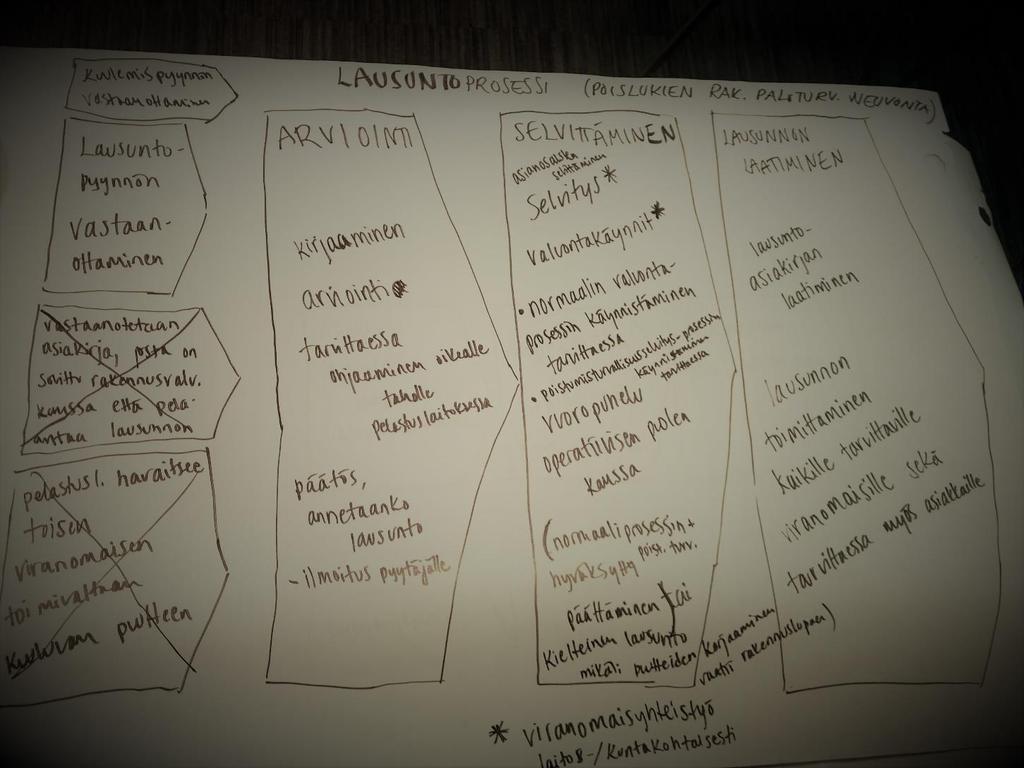 LAUSUNTOPROSESSI (POISLUKIEN RAK. PALOTURV. NEUVONTA)
Kuulemispyynnön
vastaanottaminen
Lausunto-
pyynnön
vastaan-
ottaminen
vastaanotetaan
asiakirja, josta on
sovittu rakennusvalv.
kanssa että pela-
antaa lausunnon
pelastusl. havaitsee
toisen
viranomaisen
toimivaltaan
kuuluvan puutteen
ARVIOINTI
kirjaaminen
arviointi
tarvittaessa
ohjaaminen oikealle
taholle
pelastuslaitoksessa
päätös,
annetaanko
lausunto
- ilmoitus pyytäjälle
SELVITTÄMINEN
selvittäminen
Selvitys*
valvontakäynnit*
• normaalin valvonta-
prosessin käynnistäminen
tarvittaessa
• poistumisturvallisuusselvitys-prosessin
käynnistäminen
tarvittaessa
vuoropuhelu
operatiivisen puolen
kanssa
(normaaliprosessin +
poist. turv.
hyväksytty
päättäminen) tai
kielteinen lausunto
mikäli puutteiden korjaaminen
vaatii rakennusluvan)
LAUSUNNON
LAATIMINEN
lausunto-
asiakirjan
laatiminen
lausunnon
toimittaminen
kaikille tarvittaville
viranomaisille sekä
tarvittaessa myös asiakkaille
* viranomaisyhteistyö
laitos-/kuntakohtaisesti